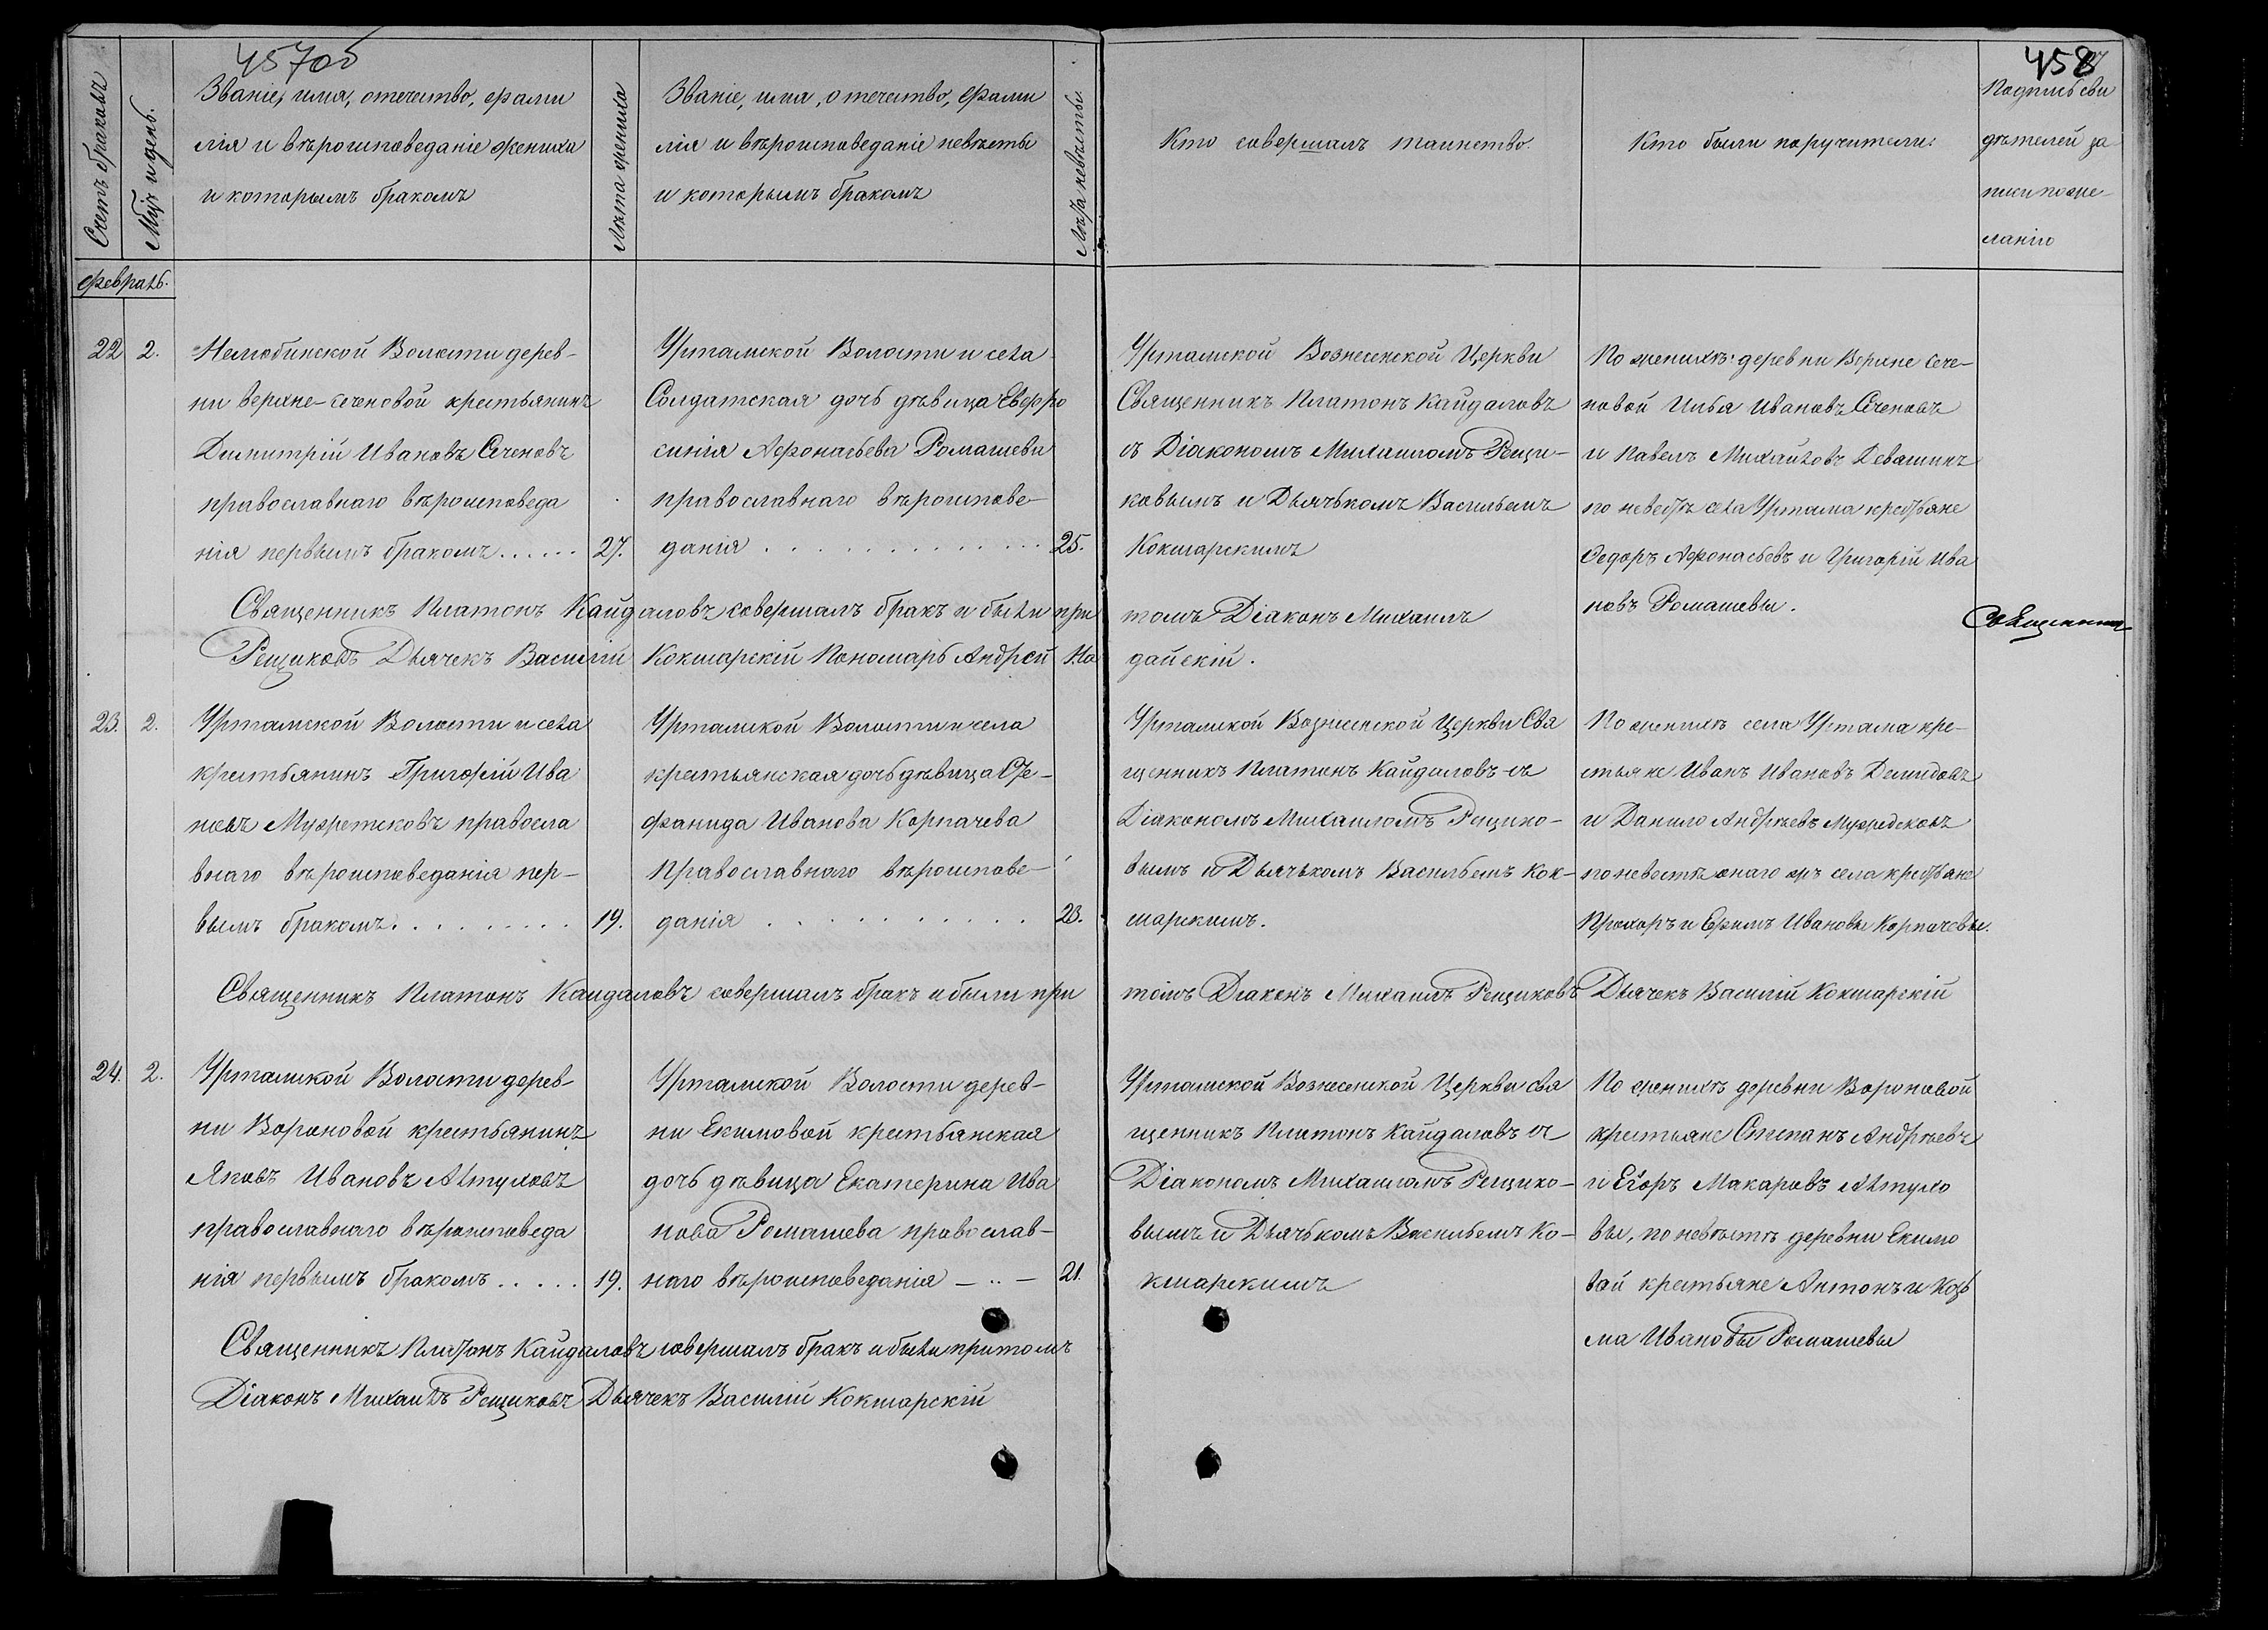 457об
458
Счетъ браковъ
Мцъ и день.
Званіе, имя, отечество, фами
лія и вѣроисповеданіе жениха
и которымъ бракомъ
Лѣта жениха
Званіе, имя, отечество, фами
лія и вѣроисповеданіе невѣсты
и которымъ бракомъ
Лѣта невѣсты.
Кто совершалъ таинство.
Кто были поручители.
Подпись сви
дѣтелей за
писи по же-
ланію
Февраль.
22 2.
Нелюбинской Волости дерев-
ни верхне-сеченовой крестьянинъ
Димитрій Ивановъ Сеченовъ
православнаго вѣроисповеда
нія первымъ бракомъ...... 27.
Уртамской Волости и села
Солдатская дочь дѣвица Евфро
синія Афонасьева Ромашева
православнаго вѣроиспове-
данія . . . . . . . . . . . . 25.
Уртамской Вознесенской Церкви
Священникъ Платонъ Кайдаловъ
съ Діакономъ Михаиломъ Рещи-
ковымъ и Дьячькомъ Васильемъ
Кокшарскимъ
По женихѣ: деревни Верхне Сече-
новой Илья Ивановъ Сеченовъ
и Павелъ Михайловъ Девашкинъ
по невестѣ села Уртама крестьяне
Федоръ Афонасьевъ и Григорій Ива
новъ Ромашевы.
Священникъ Платонъ Кайдаловъ совершалъ бракъ и были при томъ Діаконъ Михаилъ
Рещиковъ Дьячекъ Василій Кокшарскій Пономарь Андрей На дайскій.
Священник
23. 2.
Уртамской Волости и села
крестьянинъ Григорій Ива
новъ Мужретсковъ правосла
внаго вѣроисповеданія пер-
вымъ бракомъ. . . . . . . . 19.
Уртамской Волости и села
крестьянская дочь дѣвица Сте-
фанида Иванова Корпачева
Православнаго вѣроиспове-
данія . . . . . . . . . . 23.
Уртамской Вознесенской Церкви Свя
щенникъ Платонъ Кайдаловъ съ
Діакономъ Михаиломъ Рещико-
вымъ и Дьячькомъ Васильемъ Кок-
шарскимъ.
По женихѣ села Уртама кре-
стьяне Иванъ Ивановъ Демидовъ
и Данило Андреевъ Мужредсковъ
по невестѣ онаго жъ села крестьяне
Прохоръ и Ефимъ Ивановы Корпачевы.
Священникъ Платонъ Кайдаловъ совершалъ бракъ и были при томъ Діаконъ Михаилъ Рещиковъ Дьячекъ Василій Кокшарскій
24. 2.
Уртамской Волости дерев-
ни Вороновой крестьянинъ
Яковъ Ивановъ Алтуховъ
православнаго вѣроисповеда
нія первымъ бракомъ . . . . . 19.
Уртамской Волости дерев-
ни Екимовой крестьянская
дочь дѣвица Екатерина Ива
нова Ромашева православ-
наго вѣроисповеданія — .. — 21.
Уртамской Вознесенской Церкви свя
щенникъ Платонъ Кайдаловъ съ
Діакономъ Михаиломъ Рещико-
вымъ и Дьячькомъ Васильемъ Ко-
кшарскимъ
По женихѣ деревни Вороновой
крестьяне Степанъ Андреевъ
и Егоръ Макаровъ Алтухо
вы, по невѣстѣ деревни Екимо
вой крестьяне Антонъ и Козь
ма Ивановы Ромашевы
Священникъ Платонъ Кайдаловъ совершалъ бракъ и были притомъ
Діаконъ Михаилъ Рещиковъ Дьячекъ Василій Кокшарскій